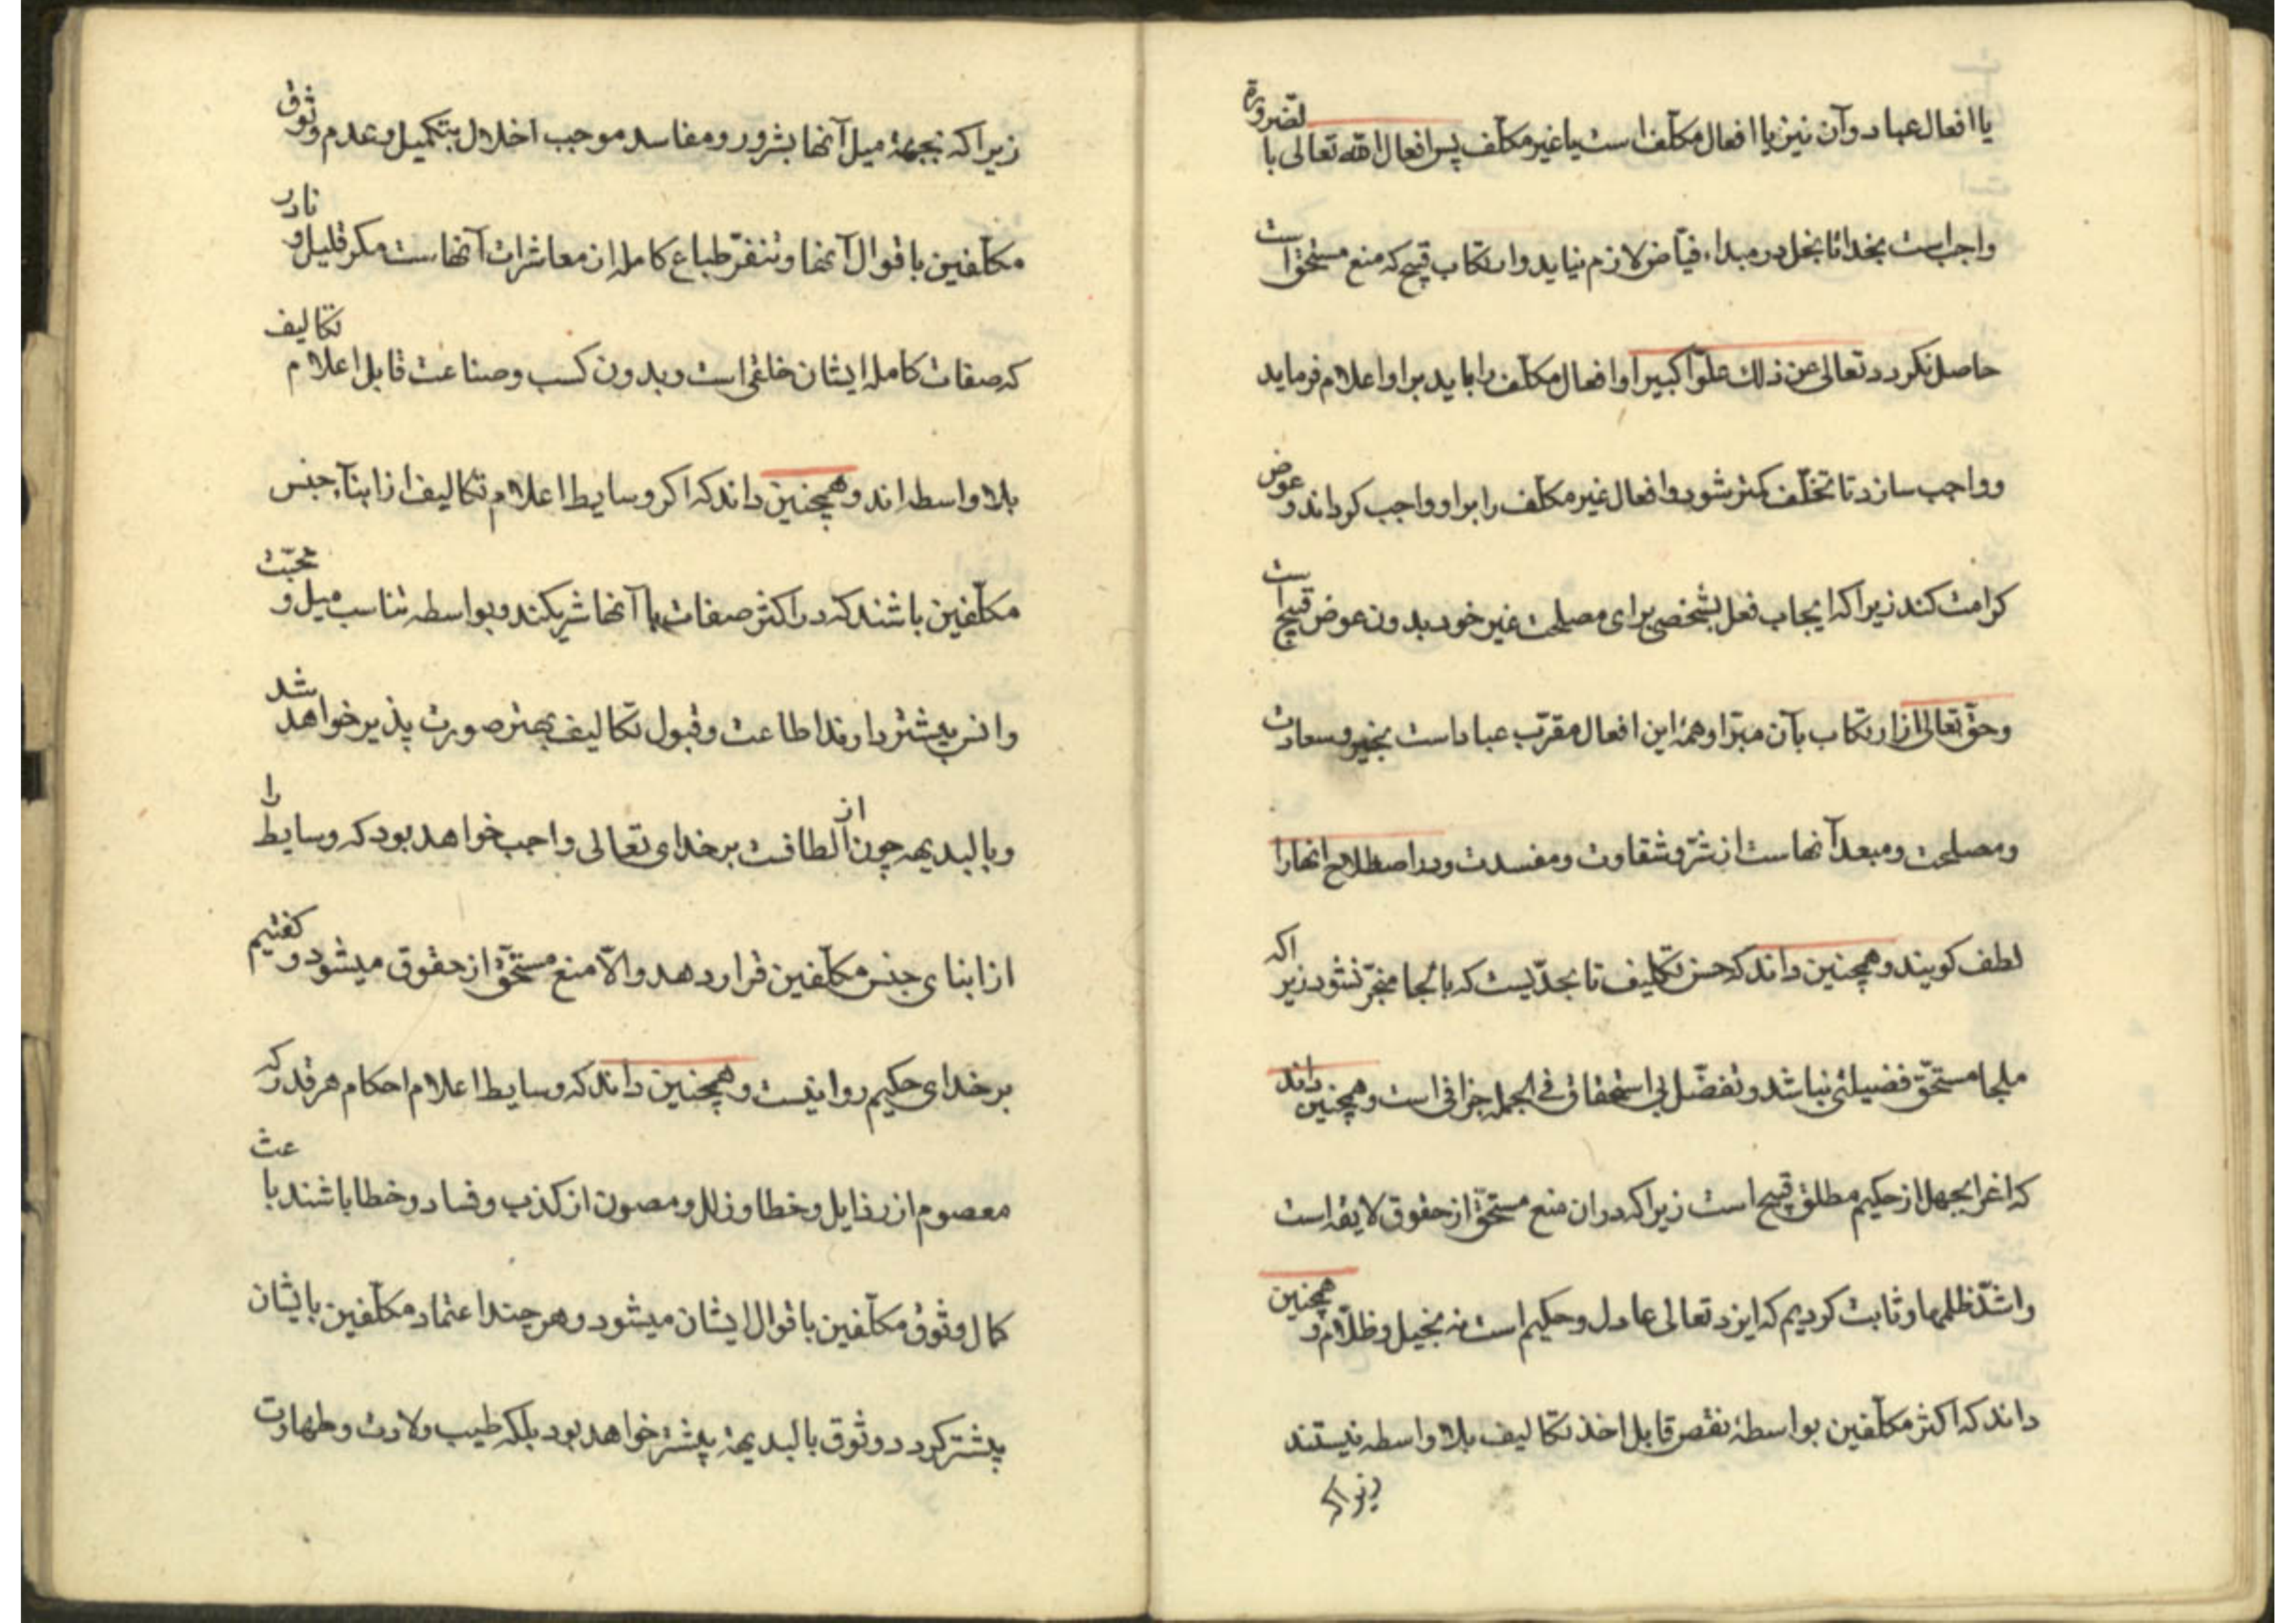 یا افعال عباد و آن نیز یا افعال مکلّف است یا غیر مکلّف پس افعال الله تعالی بالضّرورة
واجب است بخدا تا بخل در مبداء فیّاض لازم نیاید و ارتکاب قبیح که منع مستحق است
حاصل نکردد تعالی عن ذلك علوّا کبیرا و افعال مکلّف را باید بر او اعلام فرماید
و واجب سازد تا تخلّف کمتر شود و افعال غیر مکلّف را بر او واجب کرداند و عوض
کرامت کند زیرا که ایجاب فعل بشخصی برای مصلحت غیر خود بدون عوض قبیح است
و حقّ تعالی از ارتکاب بآن مبرّا و همهٔ این افعال مقرّب عباد است بخیر و سعادت
و مصلحت و مبعد آنهاست از شرّ و شقاوت و مفسدت و در اصطلاح انها را
لطف کویند و همچنین داند که حسن تکلیف تا بحدّیست که بالجا منجرّ نشود زیرا که
ملجا مستحقّ فضیلتی نباشد و تفضّل بی استحقاق فی الجمله جزافی است و همچنین داند
که اغرا بجهل از حکیم مطلق قبیح است زیرا که در ان منع مستحقّ از حقوق لایقه است
و اشدّ ظلمها و ثابت کردیم که ایزد تعالی عادل و حکیم است نه بخیل و ظلّام و همچنین
داند که اکثر مکلّفین بواسطهٔ نقص قابل اخذ تکالیف بلا واسطه نیستند
زیرا که
زیرا که بجهة میل آنها بشرور و مفاسد موجب اخلال بتکمیل و عدم وثوق
مکلّفین باقوال آنها و تنفّر طباع کامله از معاشرات آنهاست مکر قلیل و نادر
که صفات کامله ایشان خلقی است و بدون کسب و صناعت قابل اعلام تکالیف
بلا واسطه اند و همچنین داند که اکر وسایط اعلام تکالیف از ابنآء جنس
مکلّفین باشند که در اکثر صفات با آنها شریکند و بواسطه تناسب میل و محبّت
و انس بیشتر دارند اطاعت و قبول تکالیف بهتر صورت پذیر خواهد شد
و بالبدیهه چون از الطافست بر خدای تعالی واجب خواهد بود که وسایط را
از ابنای جنس مکلّفین قرار دهد و الّا منع مستحقّ از حقوق میشود و کفتیم
بر خدای حکیم روا نیست و همچنین داند که وسایط اعلام احکام هر قدر که
معصوم از رذایل و خطا و زلل و مصون از کذب و فساد و خطا باشند باعث
کمال وثوق مکلّفین باقوال ایشان میشود و هر چند اعتماد مکلّفین بایشان
بیشتر کردد وثوق بالبدیهة بیشتر خواهد بود بلکه طیب ولادت و طهارت